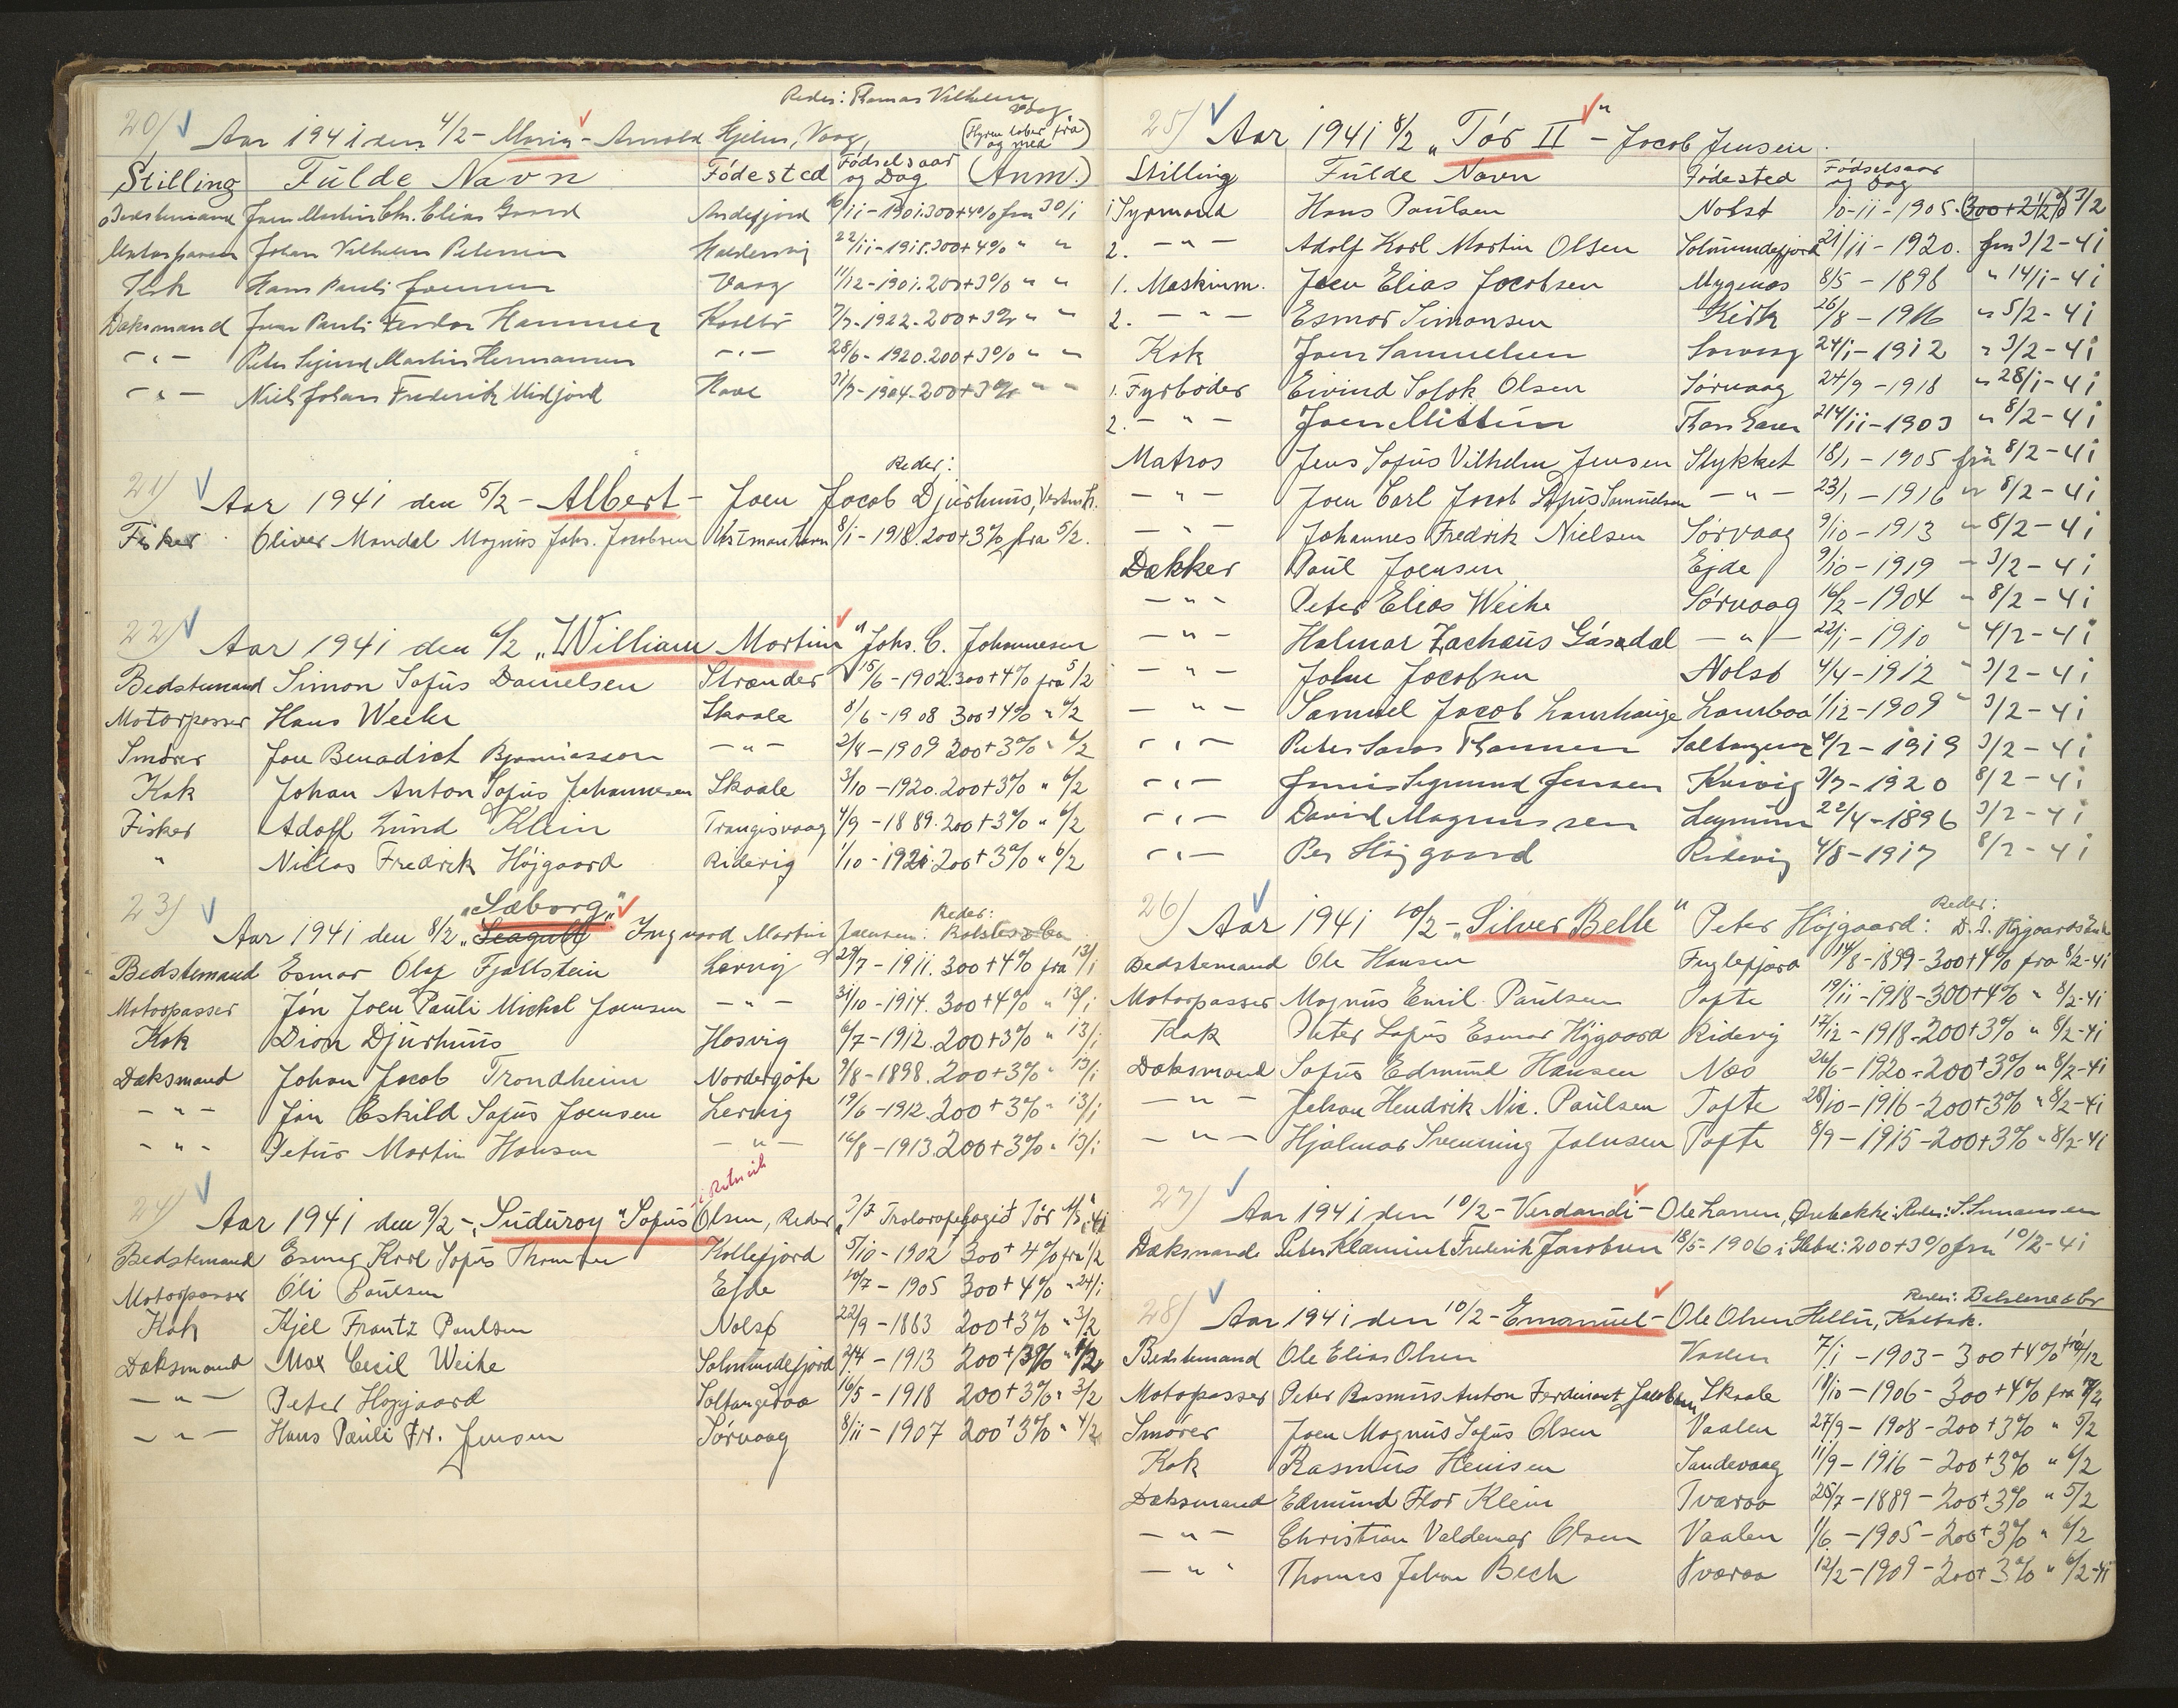 Reder: Thomas Vilhelm
Vaag
20) Aar 1941 den 4/2 - Maria - Arnold Hjelm, Vaag,
(Hyren løber fra og med)
Stilling Fulde Navn Fødested Fødselsaar og Dag (Anm.)
Bedstemand Joen Martin Chr. Elias Andefjord 6/11-1901. 300+4% fra 30/1
Motorpasser Johan Vilhelm Petersen Haldersvig 22/11-1918. 300+4% " "
Kok Hans Pauli Joensen Vaag 11/12-1901. 200+3% " "
Dæksmand Joen Pauli Hammer 1922. 200+3% " "
- " - Peter Martin Hermansen - " - 28/6-1920. 200+3% " "
- " - Niels Johan Frederik Midjord Hove 1904. 200+3% " "
Reder:
21) Aar 1941 den 5/2 - Albert - Joen Jacob Djurhuus, Vestmh.
Fisker Oliver Mandal Magnus Johs. Jacobsen Vestmanhavn 8/1-1918. 200+3% fra 5/2.
22) Aar 1941 den 6/2 „William Martin" Johs. C. Johannesen
Bedstemand Simon Sofus Danielsen Strænder 15/6-1902. 300+4% fra 5/2
Motorpasser Hans Weihe Skaale 8/6-1908 300+4% " 6/2
Smører Jon Benadict Bjarniasson - " - 2/4-1909 200+3% " 6/2
Kok Johan Anton Sofus Johannesen Skaale 3/10-1920. 200+3% " 6/2
Fisker Adolf Lund Klein Trangisvaag 4/9-1889. 200+3% " 6/2
" Niclas Fredrik Højgaard Ridevig 1/10-1921. 200+3% " 6/2
„Sæborg"
Reder:
23) Aar 1941 den 8/2 „Seagull" Ingvard Martin Joensen:
Bedstemand Esmar Olaf Fjallstein Lervig 29/7-1911. 300+4% fra 13/1
Motorpasser Jón Joen Pauli Michal Joensen - " - 31/10-1914. 300+4% " 13/1
Kok Dion Djurhuus Hosvig 6/7-1912. 200+3% " 13/1
Dæksmand Johan Jacob Trondheim Nordergøte 9/8-1898. 200+3% " 13/1
- " - Jón Eskild Sofus Joensen Lervig 19/6-1912. 200+3% " 13/1
- " - Petur Martin Hansen - " - 16/8-1913. 200+3% " 13/1
24) Aar 1941 den 9/2 - „Suduroy" Sofus Olsen, Reder
Bedstemand Esmar Karl Sofus Thomsen Kollefjord 5/10-1902 300+4% fra 1/2
Motorpasser Oli Poulsen Ejde 10/7-1905 300+4% " 24/1
Kok Kjel Frantz Poulsen Nolsø 22/9-1883 200+3% " 3/2
Dæksmand Max Cecil Weihe Solmundefjord 24/4-1913 200+3% "
- " - Peter Højgaard Saltangeraa 16/5-1918 200+3% " 3/2
- " - Hans Pauli Fr. Jensen Sørvaag 8/11-1907 200+3% " 4/2
25) Aar 1941 8/2 „Tór II" - Jacob Jensen.
Stilling Fulde Navn Fødested Fødselsaar og Dag
1 Styrmand Hans Paulsen Nolsø 10-11-1905. (300+2½% 3/2
2. - " - Adolf Karl Martin Olsen Solmundefjord 21/11-1920. fra 3/2-41
1. Maskinm. Joen Elias Jacobsen Mygenæs 8/5-1898 " 14/1-41
2. - " - Esmar Simonsen Kirk 26/8-1916 " 5/2-41
Kok Joen Samuelsen Sørvaag 24/1-1912 " 3/2-41
1. Fyrbøder Eivind Olsen Sørvaag 24/9-1918 " 28/1-41
2. - " - Joen Mittún Thorshavn 24/11-1903 " 8/2-41
Matros Jens Sofus Vilhelm Jensen Stykket 18/1-1905 fra 8/2-41
- " - Joen Carl Jacob Sofus Samuelsen - " - 23/1-1916 " 8/2-41
- " - Johannes Fredrik Nielsen Sørvaag 9/10-1913 " 8/2-41
Dækker Poul Joensen Ejde 9/10-1919 " 3/2-41
- " - Peter Elias Weihe Sørvaag 16/2-1904 " 8/2-41
- " - Halmar Zachæus Gásadal - " - 22/1-1910 " 4/2-41
- " - John Jacobsen Nolsø 4/4-1912 " 3/2-41
- " - Samuel Jacob Lamhauge Lambaa 1/12-1909 " 3/2-41
- " - Peter Thomsen Saltangeraa 4/2-1919 3/2-41
- " - Sigmund Jensen Kvivig 3/7-1920 8/2-41
- " - David Magnussen Lejnum 22/4-1896 3/2-41
- " - Per Højgaard Ridevig 4/8-1917 8/2-41
Reder:
26) Aar 1941 10/2 - „Silver Belle" Peter Højgaard: D. J. Højgaards
Bedstemand Ole Hansen Fuglefjord 14/8-1899-300+4% fra 8/2-41
Motorpasser Magnus Emil Paulsen Tofte 19/11-1918-300+4% " 8/2-41
Kok Peter Sofus Esmar Højgaard Ridevig 17/12-1918-200+3% " 8/2-41
Dæksmand Sofus Edmund Hansen Næs 26/6-1920-200+3% " 8/2-41
- " - Johan Hendrik Nic. Paulsen Tofte 28/10-1916-200+3% " 8/2-41
- " - Hjalmar Svenning Joensen Tofte 8/9-1915-200+3% " 8/2-41
27) Aar 1941 den 10/2 - Verdandi - Ole Larsen, Ørebakke: Reder: S. Simonsen
Dæksmand Peter Klæmint Frederik Jacobsen 18/5-1906 i 200+3% fra 10/2-41
Reder:
28) Aar 1941 den 10/2 - Emanuel - Ole Olsen Hellur, Kalbak.
Bedstemand Ole Elias Olsen 7/1-1903-300+4%
Motorpasser Peter Rasmus Anton Ferdinant Jacobsen Skaale 18/10-1906-300+4% fra
Smører Joen Magnus Sofus Olsen Vaalen 27/9-1908-200+3% " 5/2
Kok Rasmus Heinsen Sandevaag 11/9-1916-200+3% " 6/2
Dæksmand Edmund Flor Klein Tværaa 25/7-1889-200+3% " 5/2
- " - Christian Valdemar Olsen Vaalen 1/6-1905-200+3% " 6/2
- " - Thomas Johan Bech Tværaa 12/2-1909-200+3% " 6/2-41